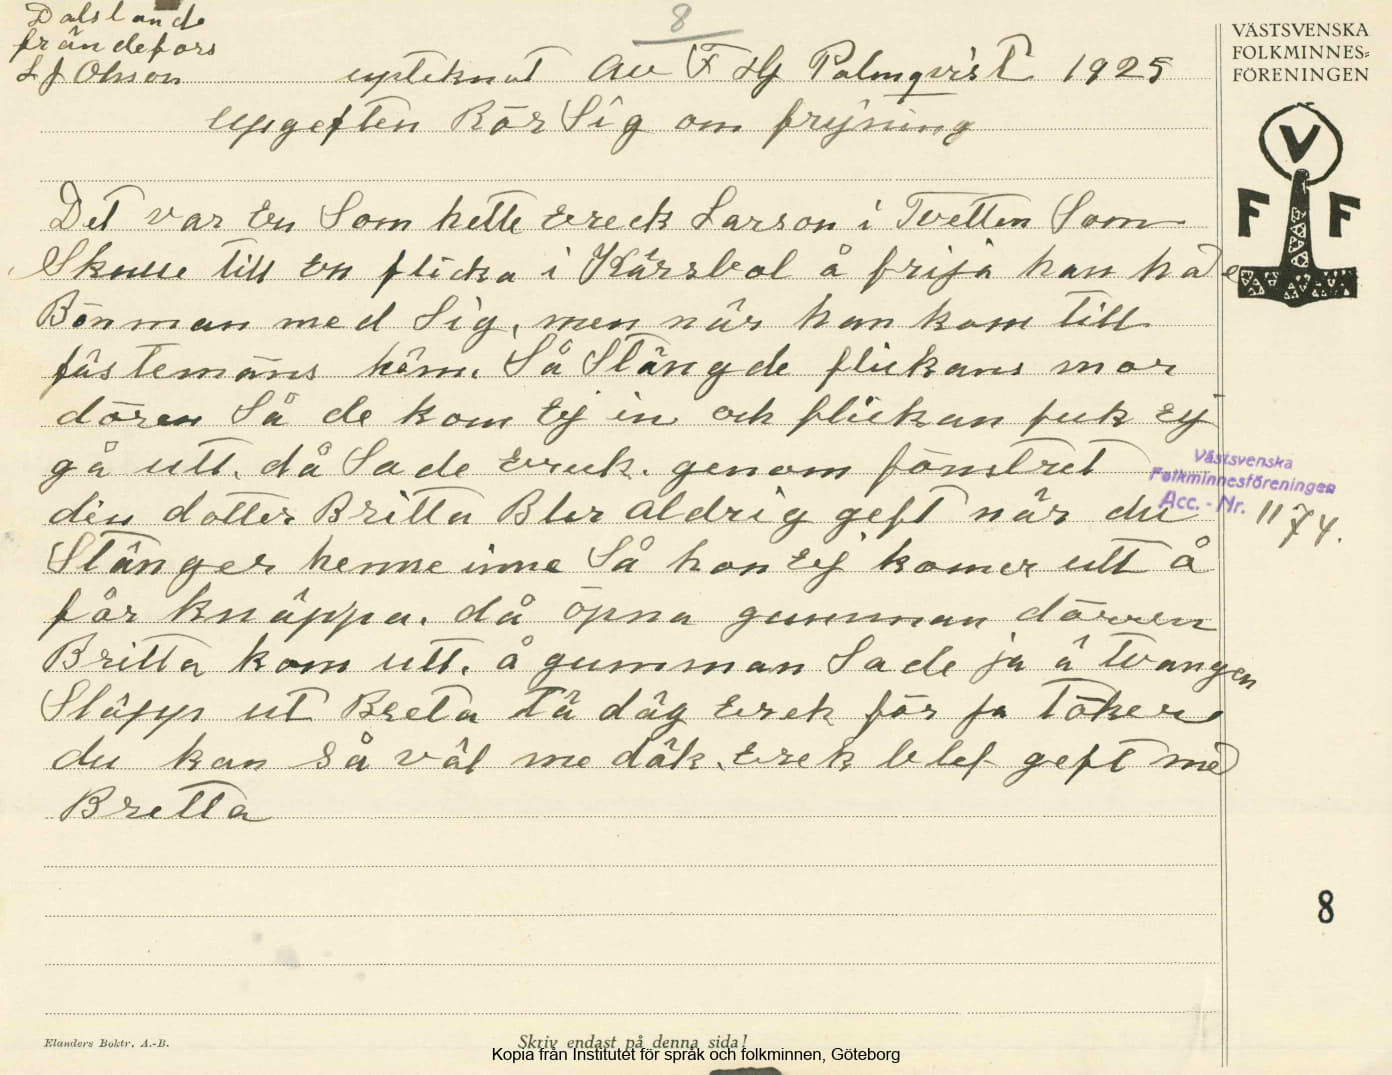 8
Dalslande
frändefors
L J Olsson
upteknat Av F Hj Palmqvist 1925
Upgeften Rör Sig om frijning
Det var En Som hette Ereck Larson i Tvetten Som
Skulle till En flicka i Kärsbol å frija han hade
Bönman med Sig, men när han kom till
fästemöns häm. Så Stängde flickans mor
dören Så de kom Ej in och flickan fick Ej
gå utt. då Sade Erick. genom fönstret
din dotter Britta Blir aldrig geft när du
Stänger henne inne Så hon Ej komer utt å
får knäppa. då öpna gumman dörren
Britta kom utt. å gumman Sade ja ä tvangen
Släpp ut Breta tä däg Erek för ja töker
du kan så väl me däk. Erek blef geft med
Bretta
VÄSTSVENSKA
FOLKMINNES-
FÖRENINGEN
V
F F
Västsvenska
Folkminnesföreningen
Acc. - Nr. 1174.
8
Elanders Boktr. A.-B.
Skriv endast på denna sida!
Kopia från Institutet för språk och folkminnen, Göteborg